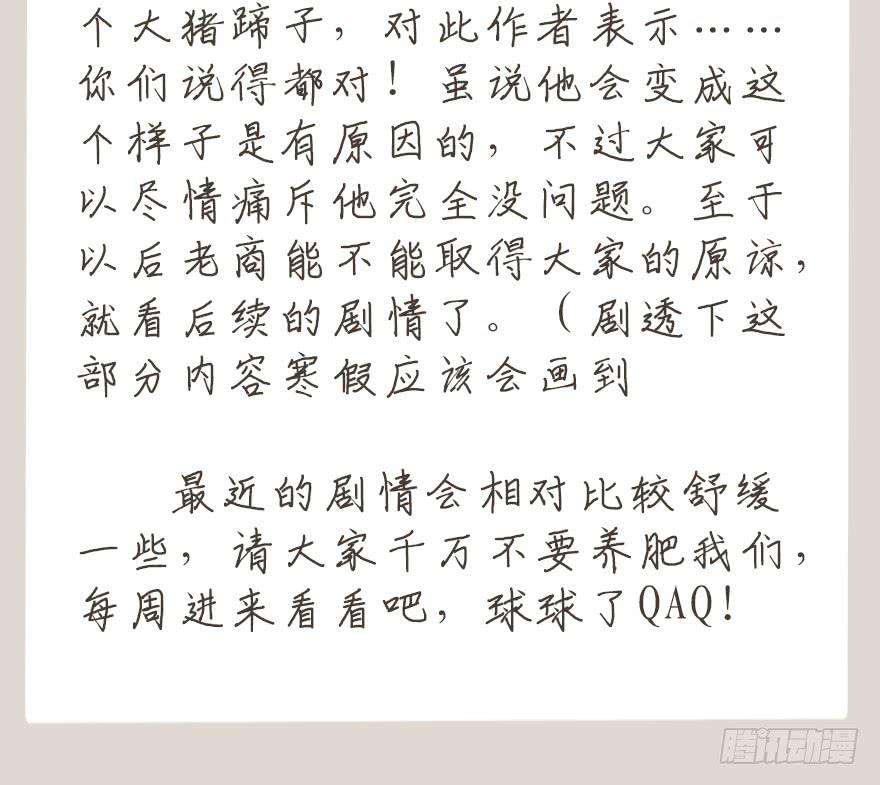 个大猪蹄子，对此作者表示……
你们说得都对！虽说他会变成这
个样子是有原因的，不过大家可
以尽情痛斥他完全没问题。至于
以后老商能不能取得大家的原谅，
就看后续的剧情了。（剧透下这
部分内容寒假应该会画到
最近的剧情会相对比较舒缓
一些，请大家千万不要养肥我们，
每周进来看看吧，球球了QAQ！
腾讯动漫